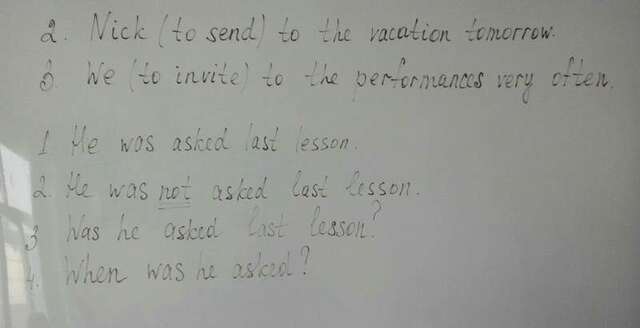 2. Nick (to send) to the vacation tomorrow.
3. We (to invite) to the performances very often.
1 He was asked last lesson.
2. He was not asked last lesson.
3 Was he asked last lesson?
4. When was he asked?